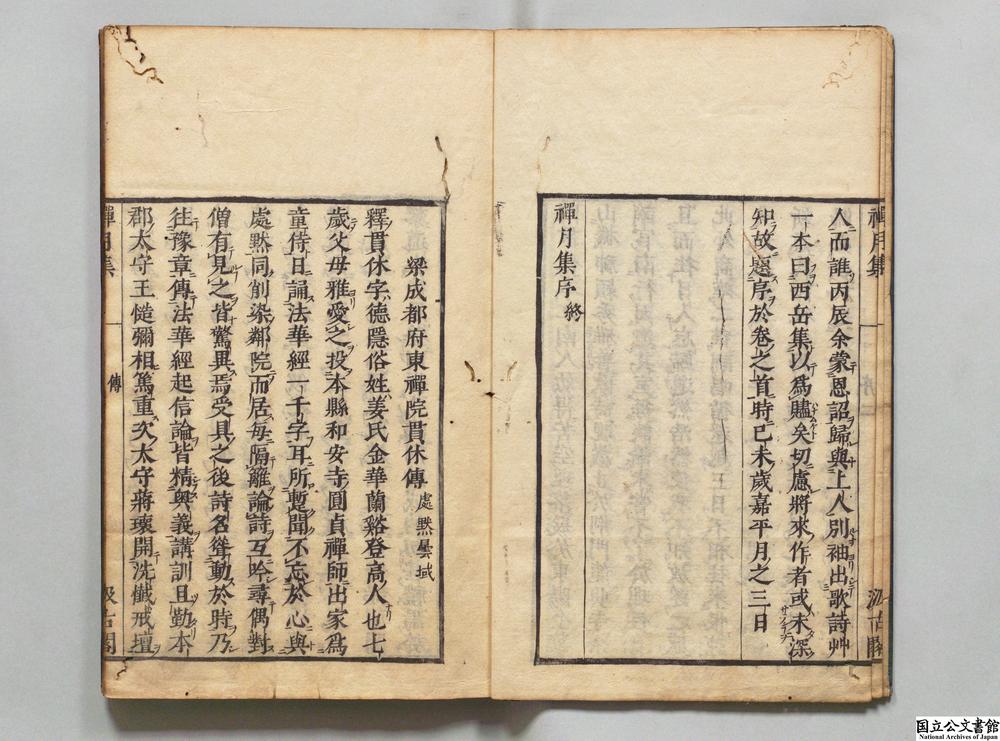 人而誰丙辰余蒙恩詔歸與上人別袖出歌詩艸
一本曰西岳集以爲贐矣切慮將來作者或未深
知故題序於卷之首時己未歲嘉平月之三日
禪月集序 終
梁成都府東禪院貫休傳 處默曇域
釋貫休字德隱俗姓姜氏金華蘭谿登高人也七
歲父母雅愛之投本縣和安寺圓貞禪師出家爲
童侍日誦法華經一千字耳所暫聞不忘於心與
處默同削染鄰院而居每隔籬論詩互吟尋偶對
僧有見之皆驚異焉受具之後詩名聳動於時乃
往豫章傳法華經起信論皆精奧義講訓且勤本
郡太守王慥彌相篤重次太守蔣瓌開洗懺戒壇
禪月集
傳
汲古閣
国立公文書館
National Archives of Japan